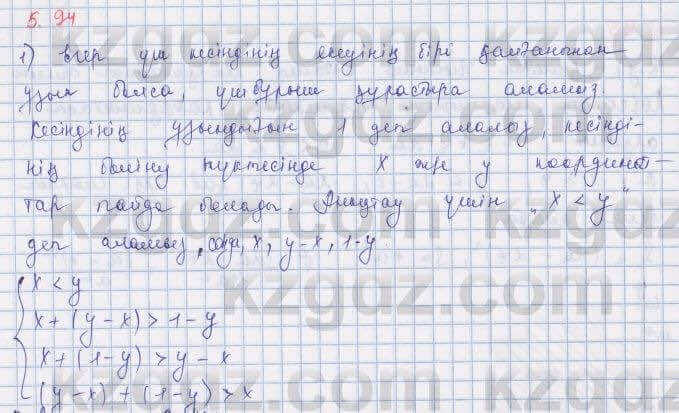 5.94
1) Егер үш кесіндінің екеуінің бірі қалғанынан
ұзын болса, үшбұрыш құрастыра аламыз.
Кесіндінің ұзындығын 1 деп аламыз, кесінді-
нің бөліну нүктесінде x және y координат-
тар пайда болады. Анықтау үшін „x < y"
деп аламыз, сонда, x, y-x, 1-y
x < y
x + (y-x) > 1-y
x + (1-y) > y-x
(y-x) + (1-y) > x
kzgdz.com